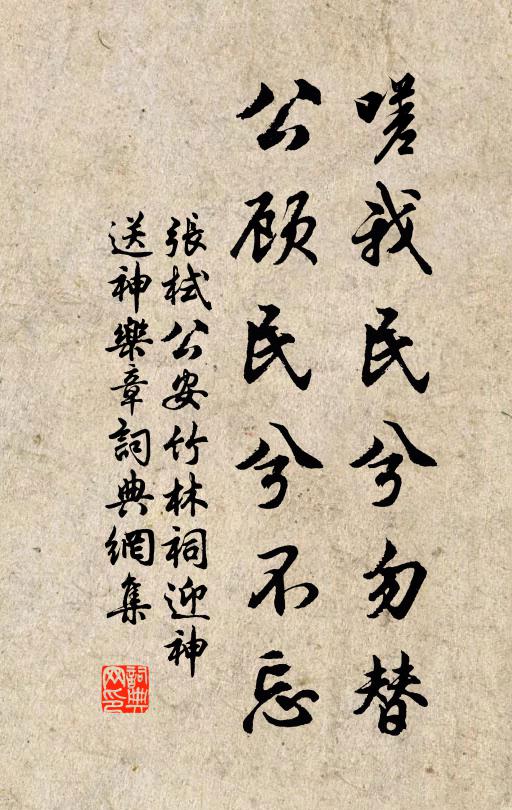 嗟我民兮勿替
公顾民兮不忘
張栻公安竹林祠迎神
送神樂章詞典網集
詞典网印